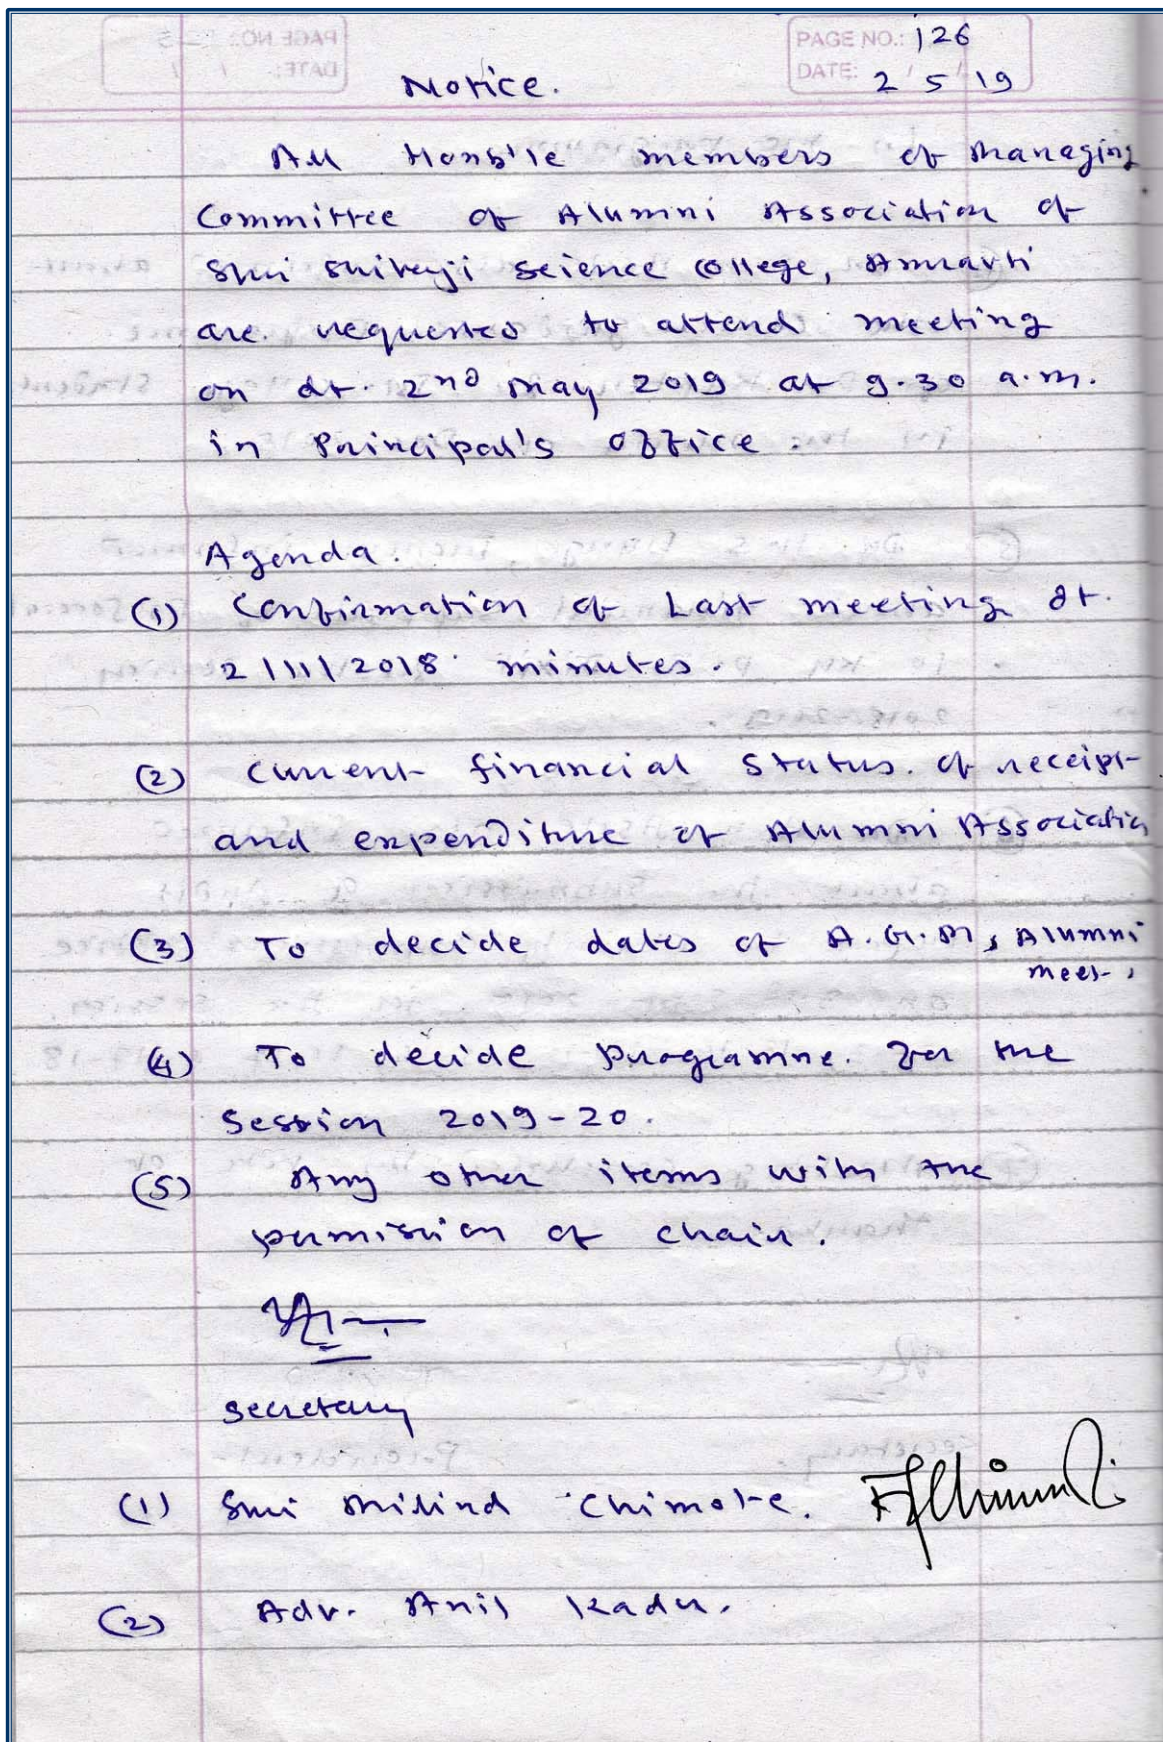 PAGE NO.: 126
DATE: 2 5 19
Notice.
All Honb'le members of Managing
Committee of Alumni Association of
Shri Shivaji Science College, Amravti
are requested to attend meeting
on dt. 2nd May 2019 at 9.30 a.m.
in Principal's office.
Agenda.
(1) Confirmation of Last meeting dt.
2/11/2018 minutes.
(2) Current financial Status. of receipt
and expenditure of Alumni Association
(3) To decide dates of A.G.M, Alumni
meet.
(4) To decide programme. for the
Session 2019-20.
(5) Any other items with the
permission of chair.
Secretary
(1) Shri Milind Chimote.
(2) Adv. Anil Kadu.